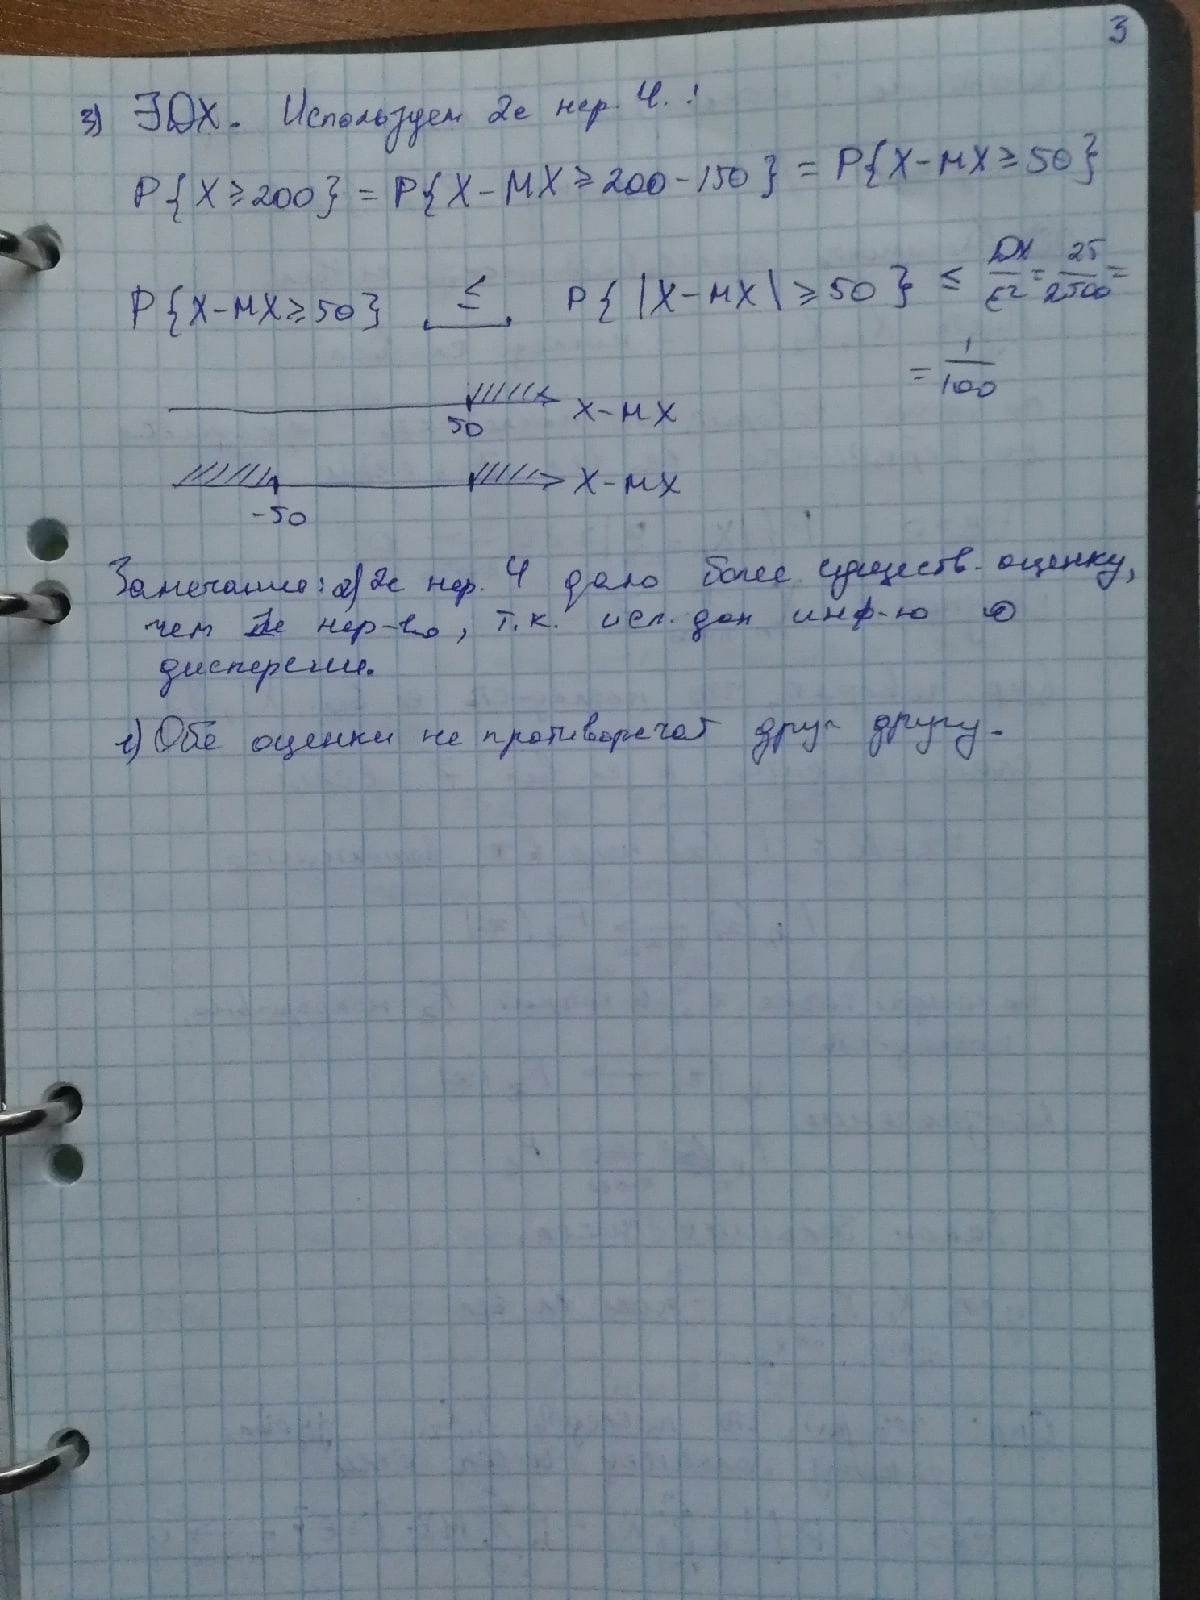 3
3) ∃DX. Используем 2е нер. Ч.:
P{X≥200} = P{X-MX≥200-150} = P{X-MX≥50}
P{X-MX≥50} ≤ P{|X-MX|≥50} ≤ DX/ε² = 25/2500 =
= 1/100
50 X-MX
-50 X-MX
Замечание: a) 2е нер. Ч дало более существ. оценку,
чем 1е нер-во, т.к. исп. доп инф-ю о
дисперсии.
b) Обе оценки не противоречат друг другу.